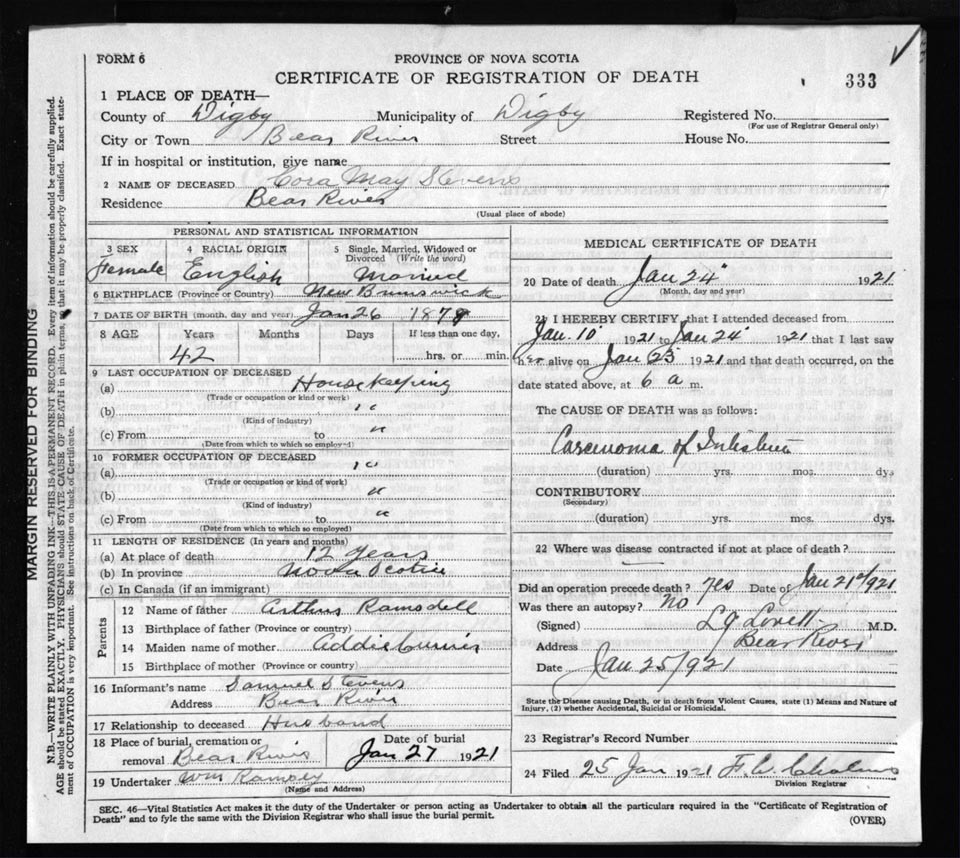 FORM 6
PROVINCE OF NOVA SCOTIA
CERTIFICATE OF REGISTRATION OF DEATH
333
1 PLACE OF DEATH—
County of Digby Municipality of Digby Registered No.
(For use of Registrar General only)
City or Town Bear River Street House No.
If in hospital or institution, give name
2 NAME OF DECEASED Cora May Stevens
Residence Bear River
(Usual place of abode)
PERSONAL AND STATISTICAL INFORMATION
3 SEX 4 RACIAL ORIGIN 5 Single, Married, Widowed or
Divorced (Write the word)
Female English Married
6 BIRTHPLACE (Province or Country) New Brunswick
7 DATE OF BIRTH (month, day and year) Jan 26 1879
8 AGE Years Months Days If less than one day,
42 hrs. or min.
9 LAST OCCUPATION OF DECEASED
(a) Housekeeping
(Trade or occupation or kind or work)
(b) "
(Kind of industry)
(c) From to "
(Date from which to which so employed)
10 FORMER OCCUPATION OF DECEASED
(a) "
(Trade or occupation or kind of work)
(b) "
(Kind of industry)
(c) From to "
(Date from which to which so employed)
11 LENGTH OF RESIDENCE (In years and months)
(a) At place of death 12 years
(b) In province Nova Scotia
(c) In Canada (if an immigrant)
Parents
12 Name of father Arthur Ramsdell
13 Birthplace of father (Province or country)
14 Maiden name of mother Addie
15 Birthplace of mother (Province or country)
16 Informant's name Samuel Stevens
Address Bear River
17 Relationship to deceased Husband
18 Place of burial, cremation or Date of burial
removal Bear River Jan 27 1921
19 Undertaker Wm Ramsey
(Name and Address)
MEDICAL CERTIFICATE OF DEATH
20 Date of death Jan 24 1921
(Month, day and year)
21 I HEREBY CERTIFY that I attended deceased from
Jan. 10 1921 to Jan 24 1921 that I last saw
her alive on Jan 23 1921 and that death occurred, on the
date stated above, at 6 a m.
The CAUSE OF DEATH was as follows:
Carcinoma of Intestine
(duration) yrs. mos. dys.
CONTRIBUTORY
(Secondary)
(duration) yrs. mos. dys.
22 Where was disease contracted if not at place of death?
Did an operation precede death? Yes Date of Jan 21st 1921
Was there an autopsy? No
(Signed) L G Lovett M.D.
Address Bear River
Date Jan 25/921
State the Disease causing Death, or in death from Violent Causes, state (1) Means and Nature of
Injury, (2) whether Accidental, Suicidal or Homicidal.
23 Registrar's Record Number
24 Filed 25 Jan 1921 F. W.
Division Registrar
SEC. 46—Vital Statistics Act makes it the duty of the Undertaker or person acting as Undertaker to obtain all the particulars required in the "Certificate of Registration of
Death" and to fyle the same with the Division Registrar who shall issue the burial permit.
(OVER)
MARGIN RESERVED FOR BINDING
N.B.—WRITE PLAINLY WITH UNFADING INK—THIS IS A PERMANENT RECORD. Every item of information should be carefully supplied.
AGE should be stated EXACTLY. PHYSICIANS should STATE CAUSE OF DEATH in plain terms, so that it may be properly classified. Exact state-
ment of OCCUPATION is very important. See instructions on back of Certificate.